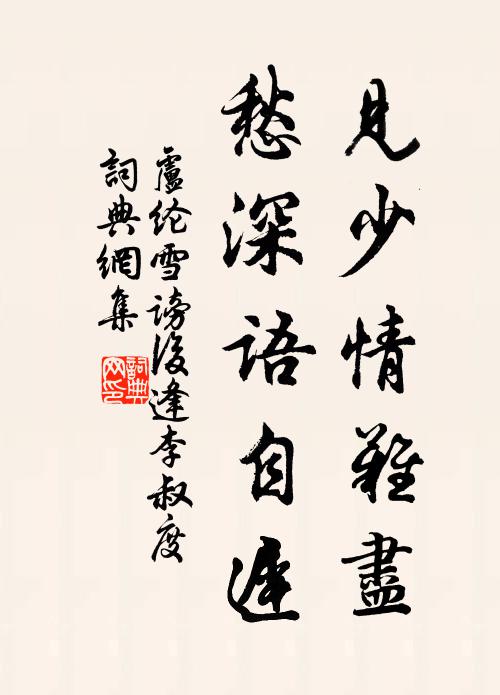 見少情難盡
愁深語自遲
盧纶雪謗後逢李叔度
詞典網集
詞典
网印